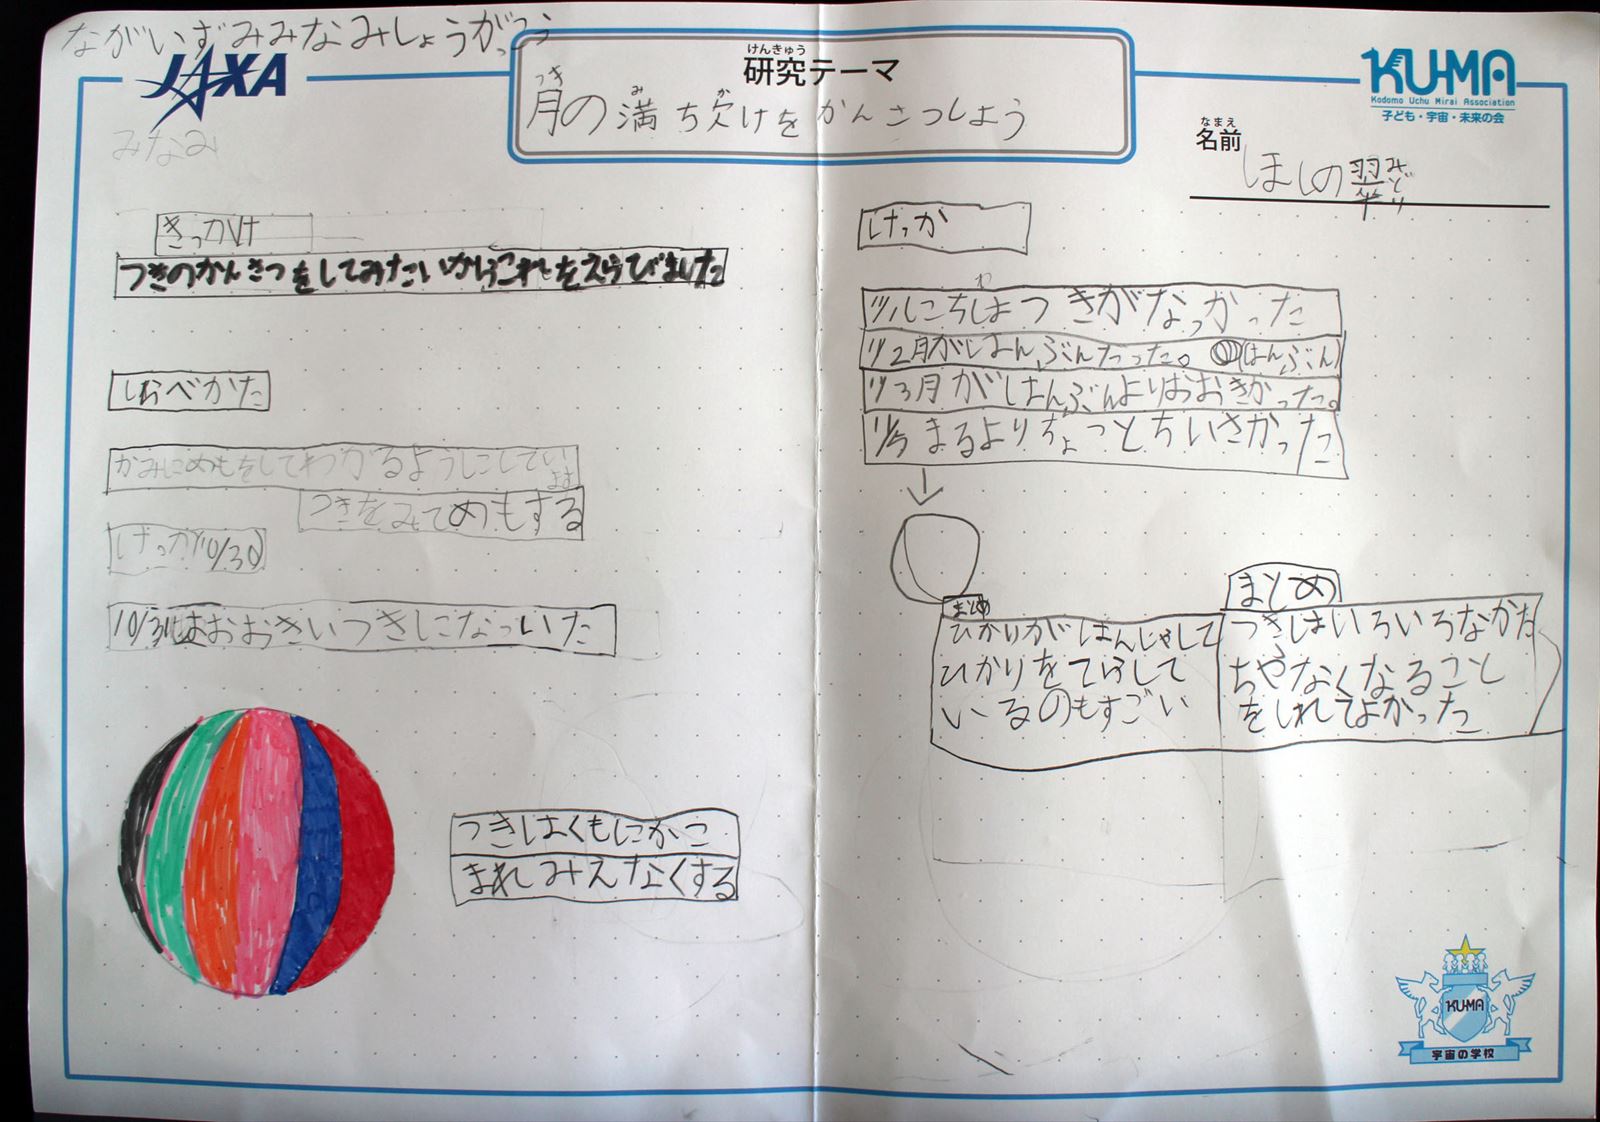 ながいずみみなみしょうがっこう
JAXA
みなみ
けんきゅう
研究テーマ
つき み か
月の満ち欠けをかんさつしよう
KUMA
Kodomo Uchu Mirai Association
子ども・宇宙・未来の会
なまえ
名前
ほしの翠 みどり
きっかけ
つきのかんさつをしてみたいからこれをえらびました
しらべかた
かみにめもをしてわかるようにしています
つきをみてめもする
けっか10/30
10/31はおおきいつきになっいた
つきはくもにかこ
まれしみえなくする
けっか
わ
11/1にちはつきがなっかった
11/2月がはんぶんだった。(はんぶん)
11/3月がはんぶんよりおおきかった。
11/5まるよりちょっとちいさかった
まとめ
ひかりがはんしゃして
ひかりをてらして
いるのもすごい
まとめ
つきはいろいろなかた
ちやなくなること
をしれてよかった
KUMA
宇宙の学校